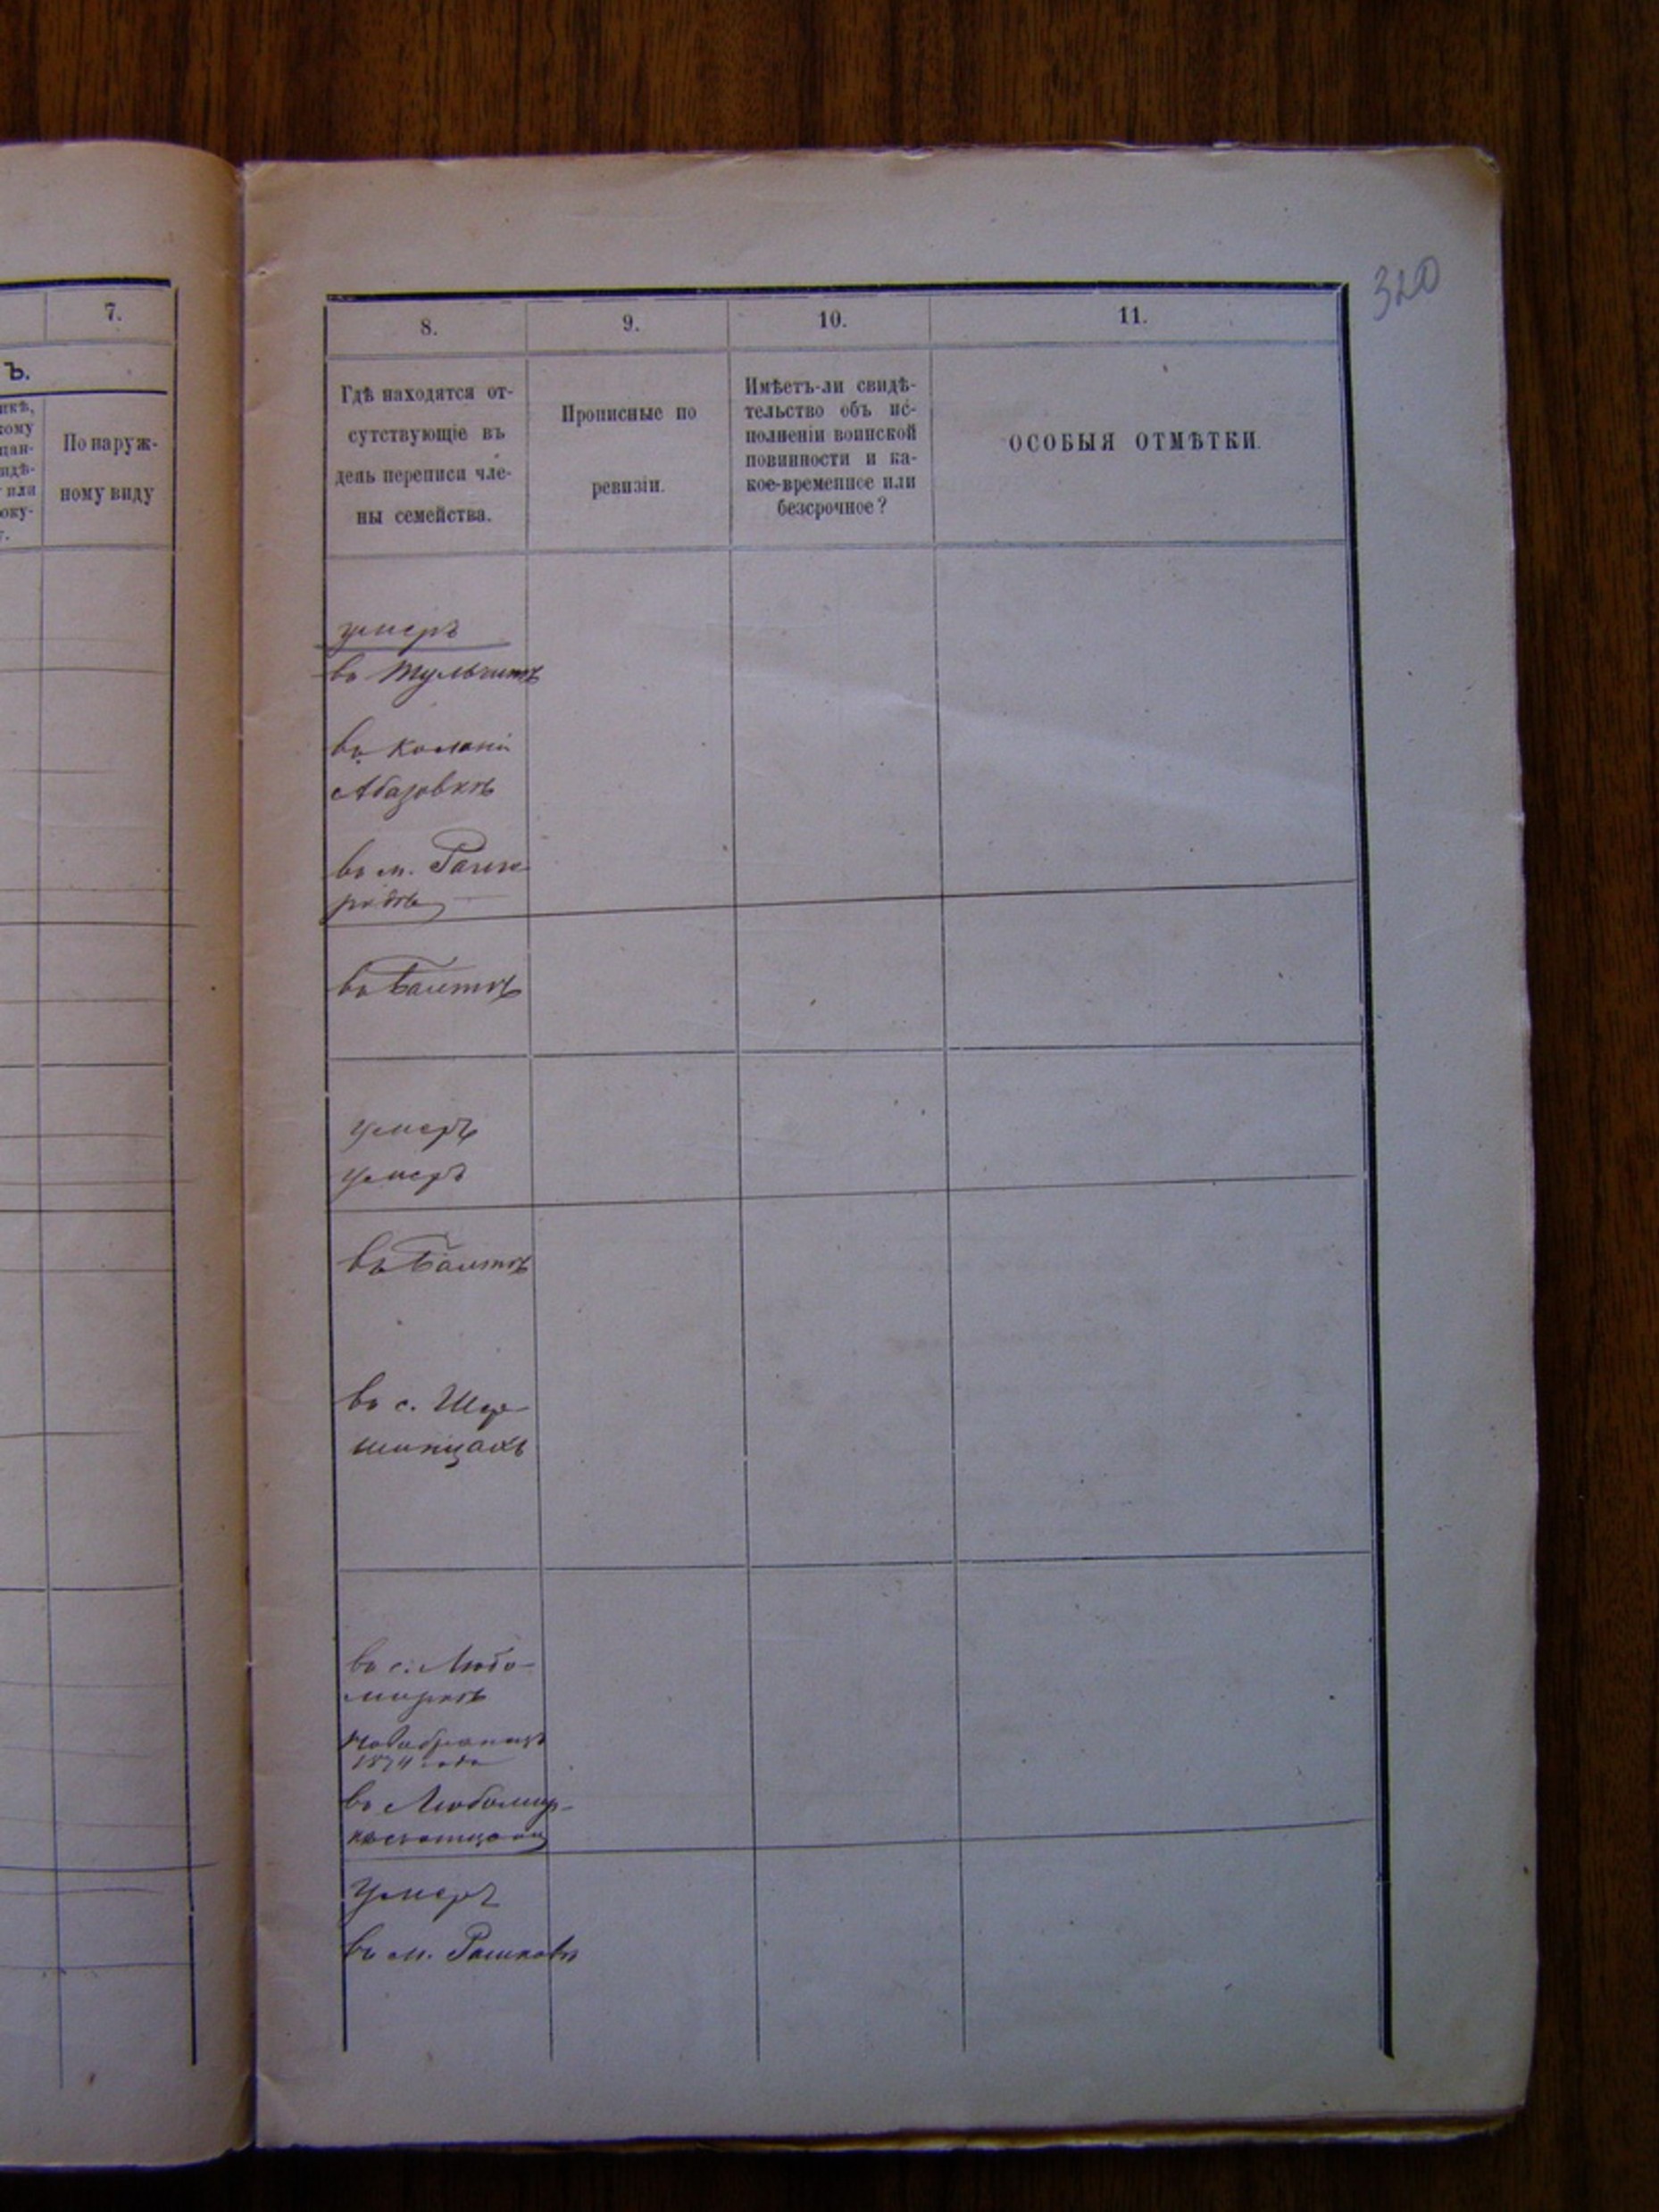 320
7.
ъ.
По наруж-
ному виду
8.
9.
10.
11.
Гдѣ находятся от-
сутствующіе въ
день переписи чле-
ны семейства.
Прописные по
ревизіи.
Имѣетъ-ли свидѣ-
тельство объ ис-
полненіи воинской
повинности и ка-
кое-временное или
безсрочное?
ОСОБЫЯ ОТМѢТКИ.
умеръ
въ Тульчинѣ
въ колоніи
Абазовкѣ
въ м.
въ Балтѣ
умеръ
умеръ
въ Балтѣ
въ с. Шер-
шинцахъ
въ с. Любо-
миркѣ
1874 года
въ Любомир-
умеръ
въ м. Рашковѣ